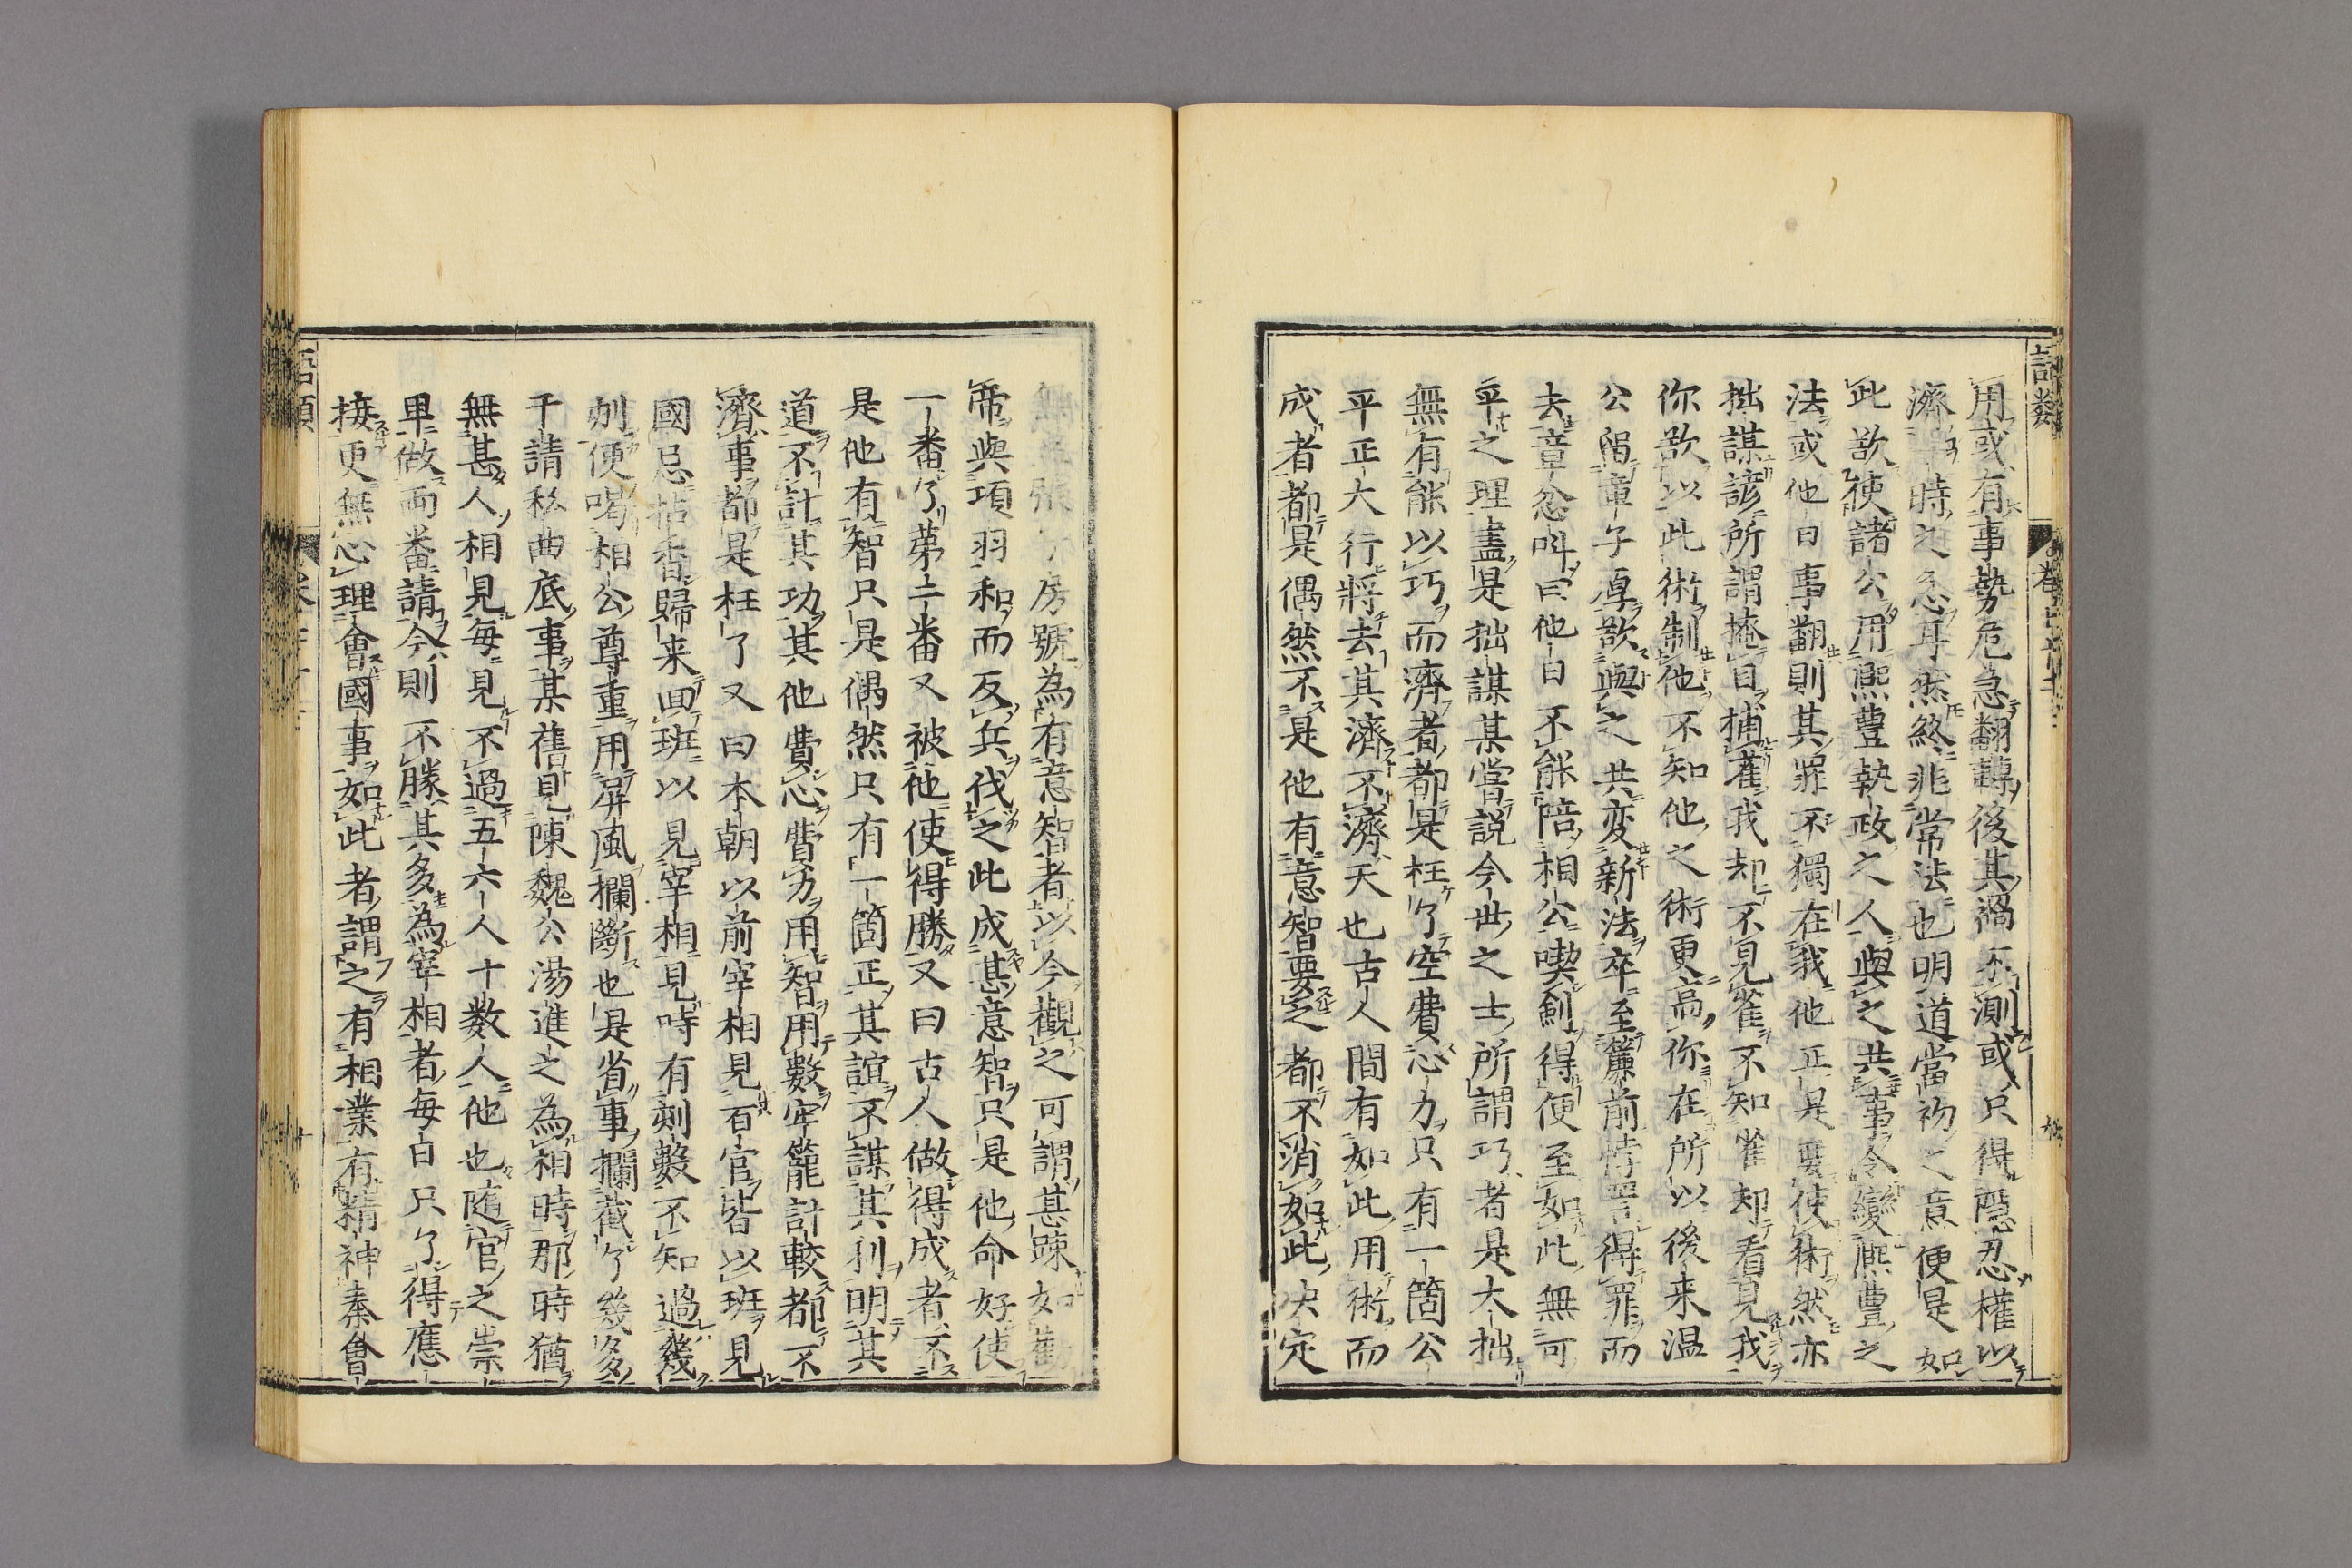 語類
用或有事勢危急翻轉後其禍不測或只得隱忍權以
濟一時之急耳然終非常法也明道當初之意便是如
此欲使諸公用熙豊執政之人與之共事令變熙豊之
法或他日事翻則其罪不獨在我他正是要使術然亦
拙謀諺所謂掩目捕雀我却不見雀不知雀却看見我
你欲以此術制他不知他之術更高你在所以後来温
公留章子厚欲與之共変新法卒至簾前悖詈得罪而
去章忿呌曰他日不能陪相公喫劍得便至如此無可
平之理盡是拙謀某嘗説今世之士所謂巧者是大拙
無有能以巧而濟者都是枉了空費心力只有一箇公
平正大行將去其濟不濟天也古人間有如此用術而
成者都是偶然不是他有意智要之都不消如此决定
無張子房號為有意智者以今觀之可謂甚踈如勸
帝與項羽和而反兵伐之此成甚意智只是他命好使
一番了第二番又被他使得勝又曰古人做得成者不
是他有智只是偶然只有一箇正其誼不謀其利明其
道不計其功其他費心費力用智用數牢籠計較都不
濟事都是枉了又曰本朝以前宰相見百官皆以班見
國忌拈香歸来回班以見宰相見時有刻數不知過幾
刻便喝相公尊重用屏風攔斷也是省事攔截了幾多
干請私曲底事某舊見陳魏公湯進之為相時那時猶
無甚人相見每見不過五六人十数人他也隨官之崇
卑做兩番請今則不勝其多為宰相者每日只了得應
接更無心理會國事如此者謂之有相業有精神秦會
語類